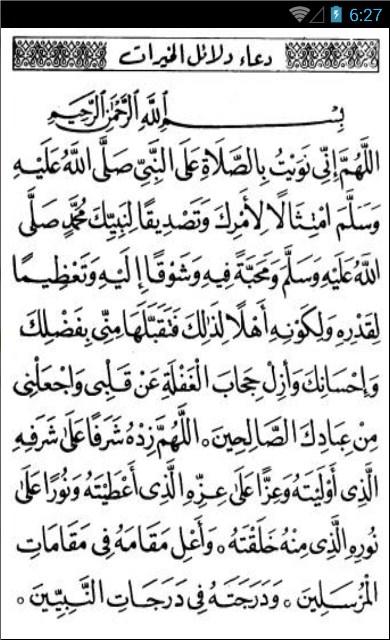 6:27
دعاء دلائل الخيرات
بِسْمِ اللهِ الرَّحْمٰنِ الرَّحِيمِ
اللَّهُمَّ إِنِّي نَوَيْتُ بِالصَّلَاةِ عَلَى النَّبِيِّ صَلَّى اللهُ عَلَيْهِ
وَسَلَّمَ امْتِثَالًا لِأَمْرِكَ وَتَصْدِيقًا لِنَبِيِّكَ مُحَمَّدٍ صَلَّى
اللهُ عَلَيْهِ وَسَلَّمَ وَمَحَبَّةً فِيهِ وَشَوْقًا إِلَيْهِ وَتَعْظِيمًا
لِقَدْرِهِ وَلِكَوْنِهِ أَهْلًا لِذٰلِكَ فَتَقَبَّلْهَا مِنِّي بِفَضْلِكَ
وَإِحْسَانِكَ وَأَزِلْ حِجَابَ الْغَفْلَةِ عَنْ قَلْبِي وَاجْعَلْنِي
مِنْ عِبَادِكَ الصَّالِحِينَ ۞ اللَّهُمَّ زِدْهُ شَرَفًا عَلَى شَرَفِهِ
الَّذِي أَوْلَيْتَهُ وَعِزًّا عَلَى عِزِّهِ الَّذِي أَعْطَيْتَهُ وَنُورًا عَلَى
نُورِهِ الَّذِي مِنْهُ خَلَقْتَهُ ۞ وَأَعْلِ مَقَامَهُ فِي مَقَامَاتِ
الْمُرْسَلِينَ ۞ وَدَرَجَتَهُ فِي دَرَجَاتِ النَّبِيِّينَ ۞